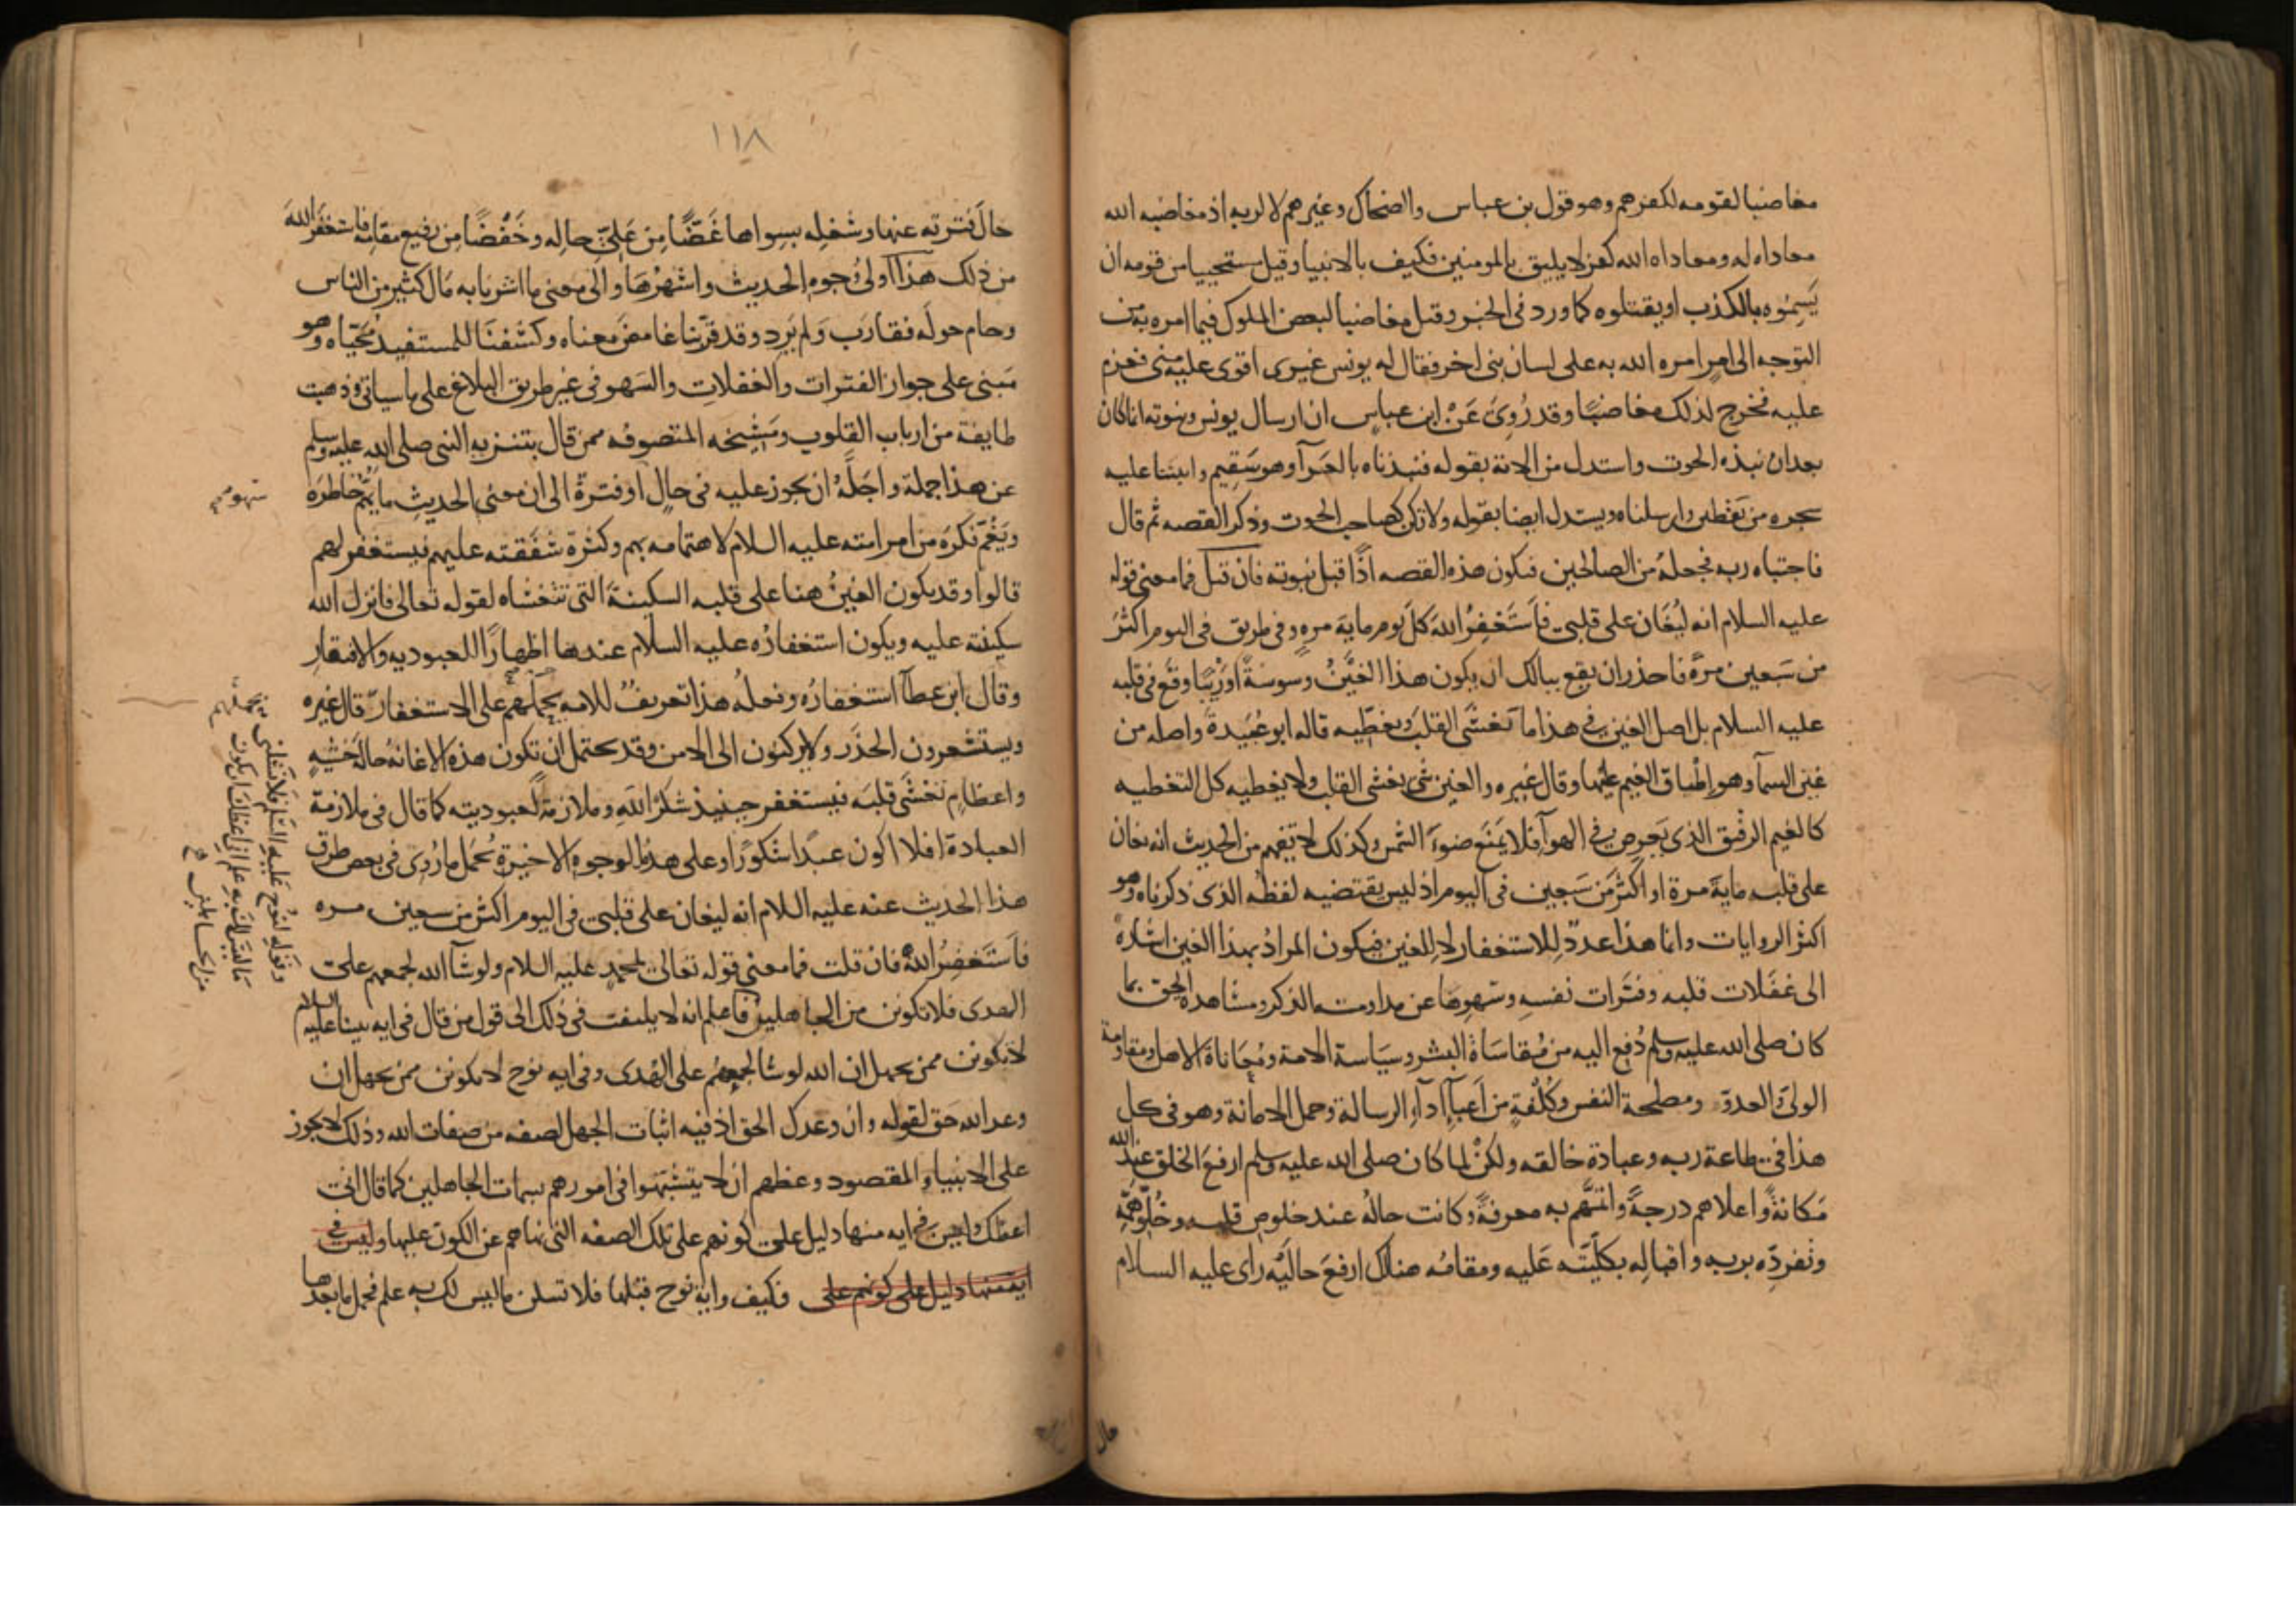 مغاضبا لقومه لكفرهم وهو قول بن عباس والضحاك وغيرهم لا لربه اذ مغاضبه الله
معاداه له ومعاداه الله كفر لا يليق بالمومنين فكيف بالانبيا وقيل مستحييا من قومه ان
يَسِمُوه بالكذب او يقتلوه كما ورد في الخبر وقيل مغاضبا لبعض الملوك فيما امره به من
التوجه الى امرٍ امره الله به على لسان نبي اخر فقال له يونس غيري اقوى عليه مني فعزم
عليه فخرج لذلك مغاضبًا وقد رُوِيَ عَنْ ابن عباسٍ ان ارسال يونس ونبوته انما كان
بعد ان نبذه الحوت واستدل من الاية بقوله فنبذناه بالعَرآ وهو سَقِيم وانبتنا عليه
شجره من يَقْطين وارسلناه ويستدل ايضا بقوله ولا تكن كصاحب الحوت وذكر القصه ثم قال
فاجتباه ربه فجعلهُ من الصالحين فتكون هذه القصه اذًا قبل نبوته فان قيل فما معنى قوله
عليه السلام انه ليُغَان على قلبي فاَستَغفِرُ اللهَ كلَّ يوم ماية مرهٍ وفي طريق في اليوم اكثرَ
من سَبعين مرّة فاحذر ان يقع ببالك ان يكون هذا الغَيْنُ وسوسةً اورَيْبًا وقع في قلبه
عليه السلام بل اصل الغين في هذا ما تغشَّى القلبَ ويغطّيه قاله ابو عُبَيدةَ واصله من
غين السمآ وهو اِطباق الغيم عليها وقال غيره والغين شي يغشى القلب ولا يغطيه كل التغطيه
كالغيم الرقيق الذي يَعرِض في الهوآ فلا يَمنَع ضَوءَ الشمس وكذلك لا تفهم من الحديث انه يغان
على قلبه مايةَ مرة او اكثَر من سَبعين في اليوم اذ ليس يقتضيه لفظُه الذي ذكرناه وهو
اكثَر الروايات وانما هذا عددٌ للاستغفار لا للغين فيكون المرادُ بهذا الغين اشارةً
الى غَفَلات قلبه وفَتَرات نفسِه وسَهوِها عن مداومه الذكر ومشاهده الحق بما
كان صلى الله عليه وسلم دُفع اليه من مُقاسَاة البشر وسيَاسة الامة ومُعَاناة الاهل ومقاومة
الوليّ والعدوّ ومصلحة النفس وكُلْفةٍ من اَعبآء اَدآء الرسالة وحمل الامانة وهو في كل
هذا في طاعة ربه وعبادة خالقه ولكنْ لما كان صلى الله عليه وسلم ارفعَ الخلق عند الله
مَكانةً واعلاهم درجةً واتمَّهم به معرفةً وكانت حالُه عند خلوص قلبه وخُلُوّ هَمِّه
وتفردِّه بربه واقبالِه بكلّيَّته عَليه ومقامُه هنالك ارفعَ حالَيْه راى عليه السلام
حال
١١٨
حالَ فترته عنها وشغلِه بسِواها غَضًّا مِن عَليِّ حالِه وخَفْضًا مِن رفيع مقامِه فاستغفَر اللهَ
من ذلك هذا اولى وُجوهِ الحديث واشهَرُها والى معنى ما اشرنا به مَال كثير من الناس
وحام حولَه فقارَب وَلم يَرِد وقد قرّبنا غامض معناه وكشفنَا للمستفيد مُحَيّاه وهو
مَبني على جواز الفترات والغفلاتِ والسَهو في غير طريق البلاغ على ما سياتى وذهبت
طايفة من ارباب القلوب ومَشيخه المتصوفه ممن قال بتنزيه النبي صلى الله عليه وسلم
عن هذا جملة واجَلَّهُ ان يجوز عليه في حالٍ او فترة الى ان معنى الحديثِ ما يُهِمُّ خاطرَه
ويَغُمّ فكرَه من امر امته عليه السلام لاهتمامه بهم وكثرة شفَقته عليهم فيستغفر لهم
قالوا وقد يكون الغينُ هنا على قلبه السكينةَ التي تتغشاه لقوله تعالى فانزل الله
سكينته عليه ويكون استغفارُه عليه السلام عندها اظهارًا للعبوديه والافتقار
وقال ابن عطآ استغفارُه وفعلُه هذا تعريفٌ للامه يَحمِلُهم على الاستغفار قال غيره
ويستشعرون الحذَر ولا يركنون الى الامن وقد يحتمل ان تكون هذه الاغانه حالةَ خشيهٍ
واعظامٍ تغشَى قلبَه فيستغفر حينيذ شكرًا للهِ وملازمةً لعبوديته كما قال في ملازمة
العبادة افلا اكون عبدًا شكورًا وعلى هذه الوجوهِ الاخيرة يُحمَل ما رُوِي في بعض طرق
هذا الحديث عنه عليه السلام انه ليغان على قلبي في اليوم اكثر من سبعين مره
فاَستَغفِرُ اللهَ فان قلت فما معنى قوله تعالى لمحمدٍ عليه السلام ولو شآ الله لجمعهم على
الهدى فلا تكونن من الجاهلين فاعلم انه لا يلتفت في ذلك الى قول من قال في ايه نبينا عليه السلام
لا تكونن ممن يجهل ان الله لو شا لجمعهم على الهُدى وفي ايه نوح لا تكونن ممن يجهل ان
وعد الله حَق لقوله وان وعدك الحق اذ فيه اثبات الجهل لصفه من صفات الله وذلك لا يجوز
على الانبيا والمقصود وعظهم ان لا يتشبّهوا في امورهم بسمات الجاهلين كما قال اني
اعظك وليس في ايه منها دليل على كونهم على تلك الصفه التي نهاهم عن الكون عليها وليس في
ايه منها دليل على كونهم على فكيف واية نوح قبلها فلا تسلن ما ليس لك به علم فحمل ما بعدها
يحملهم
وقوله لنوح عليه السلام فلا تسلني
ما ليس لك به علم اني اعظك ان تكون
من الجاهلين